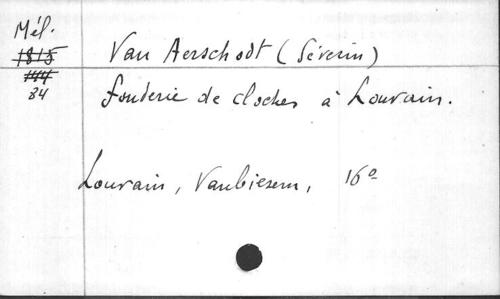 Mél.
1815
144
84
Van Aerschodt (Séverin)
fonderie de cloches à Louvain.
Louvain, Vanbiesem, 16°